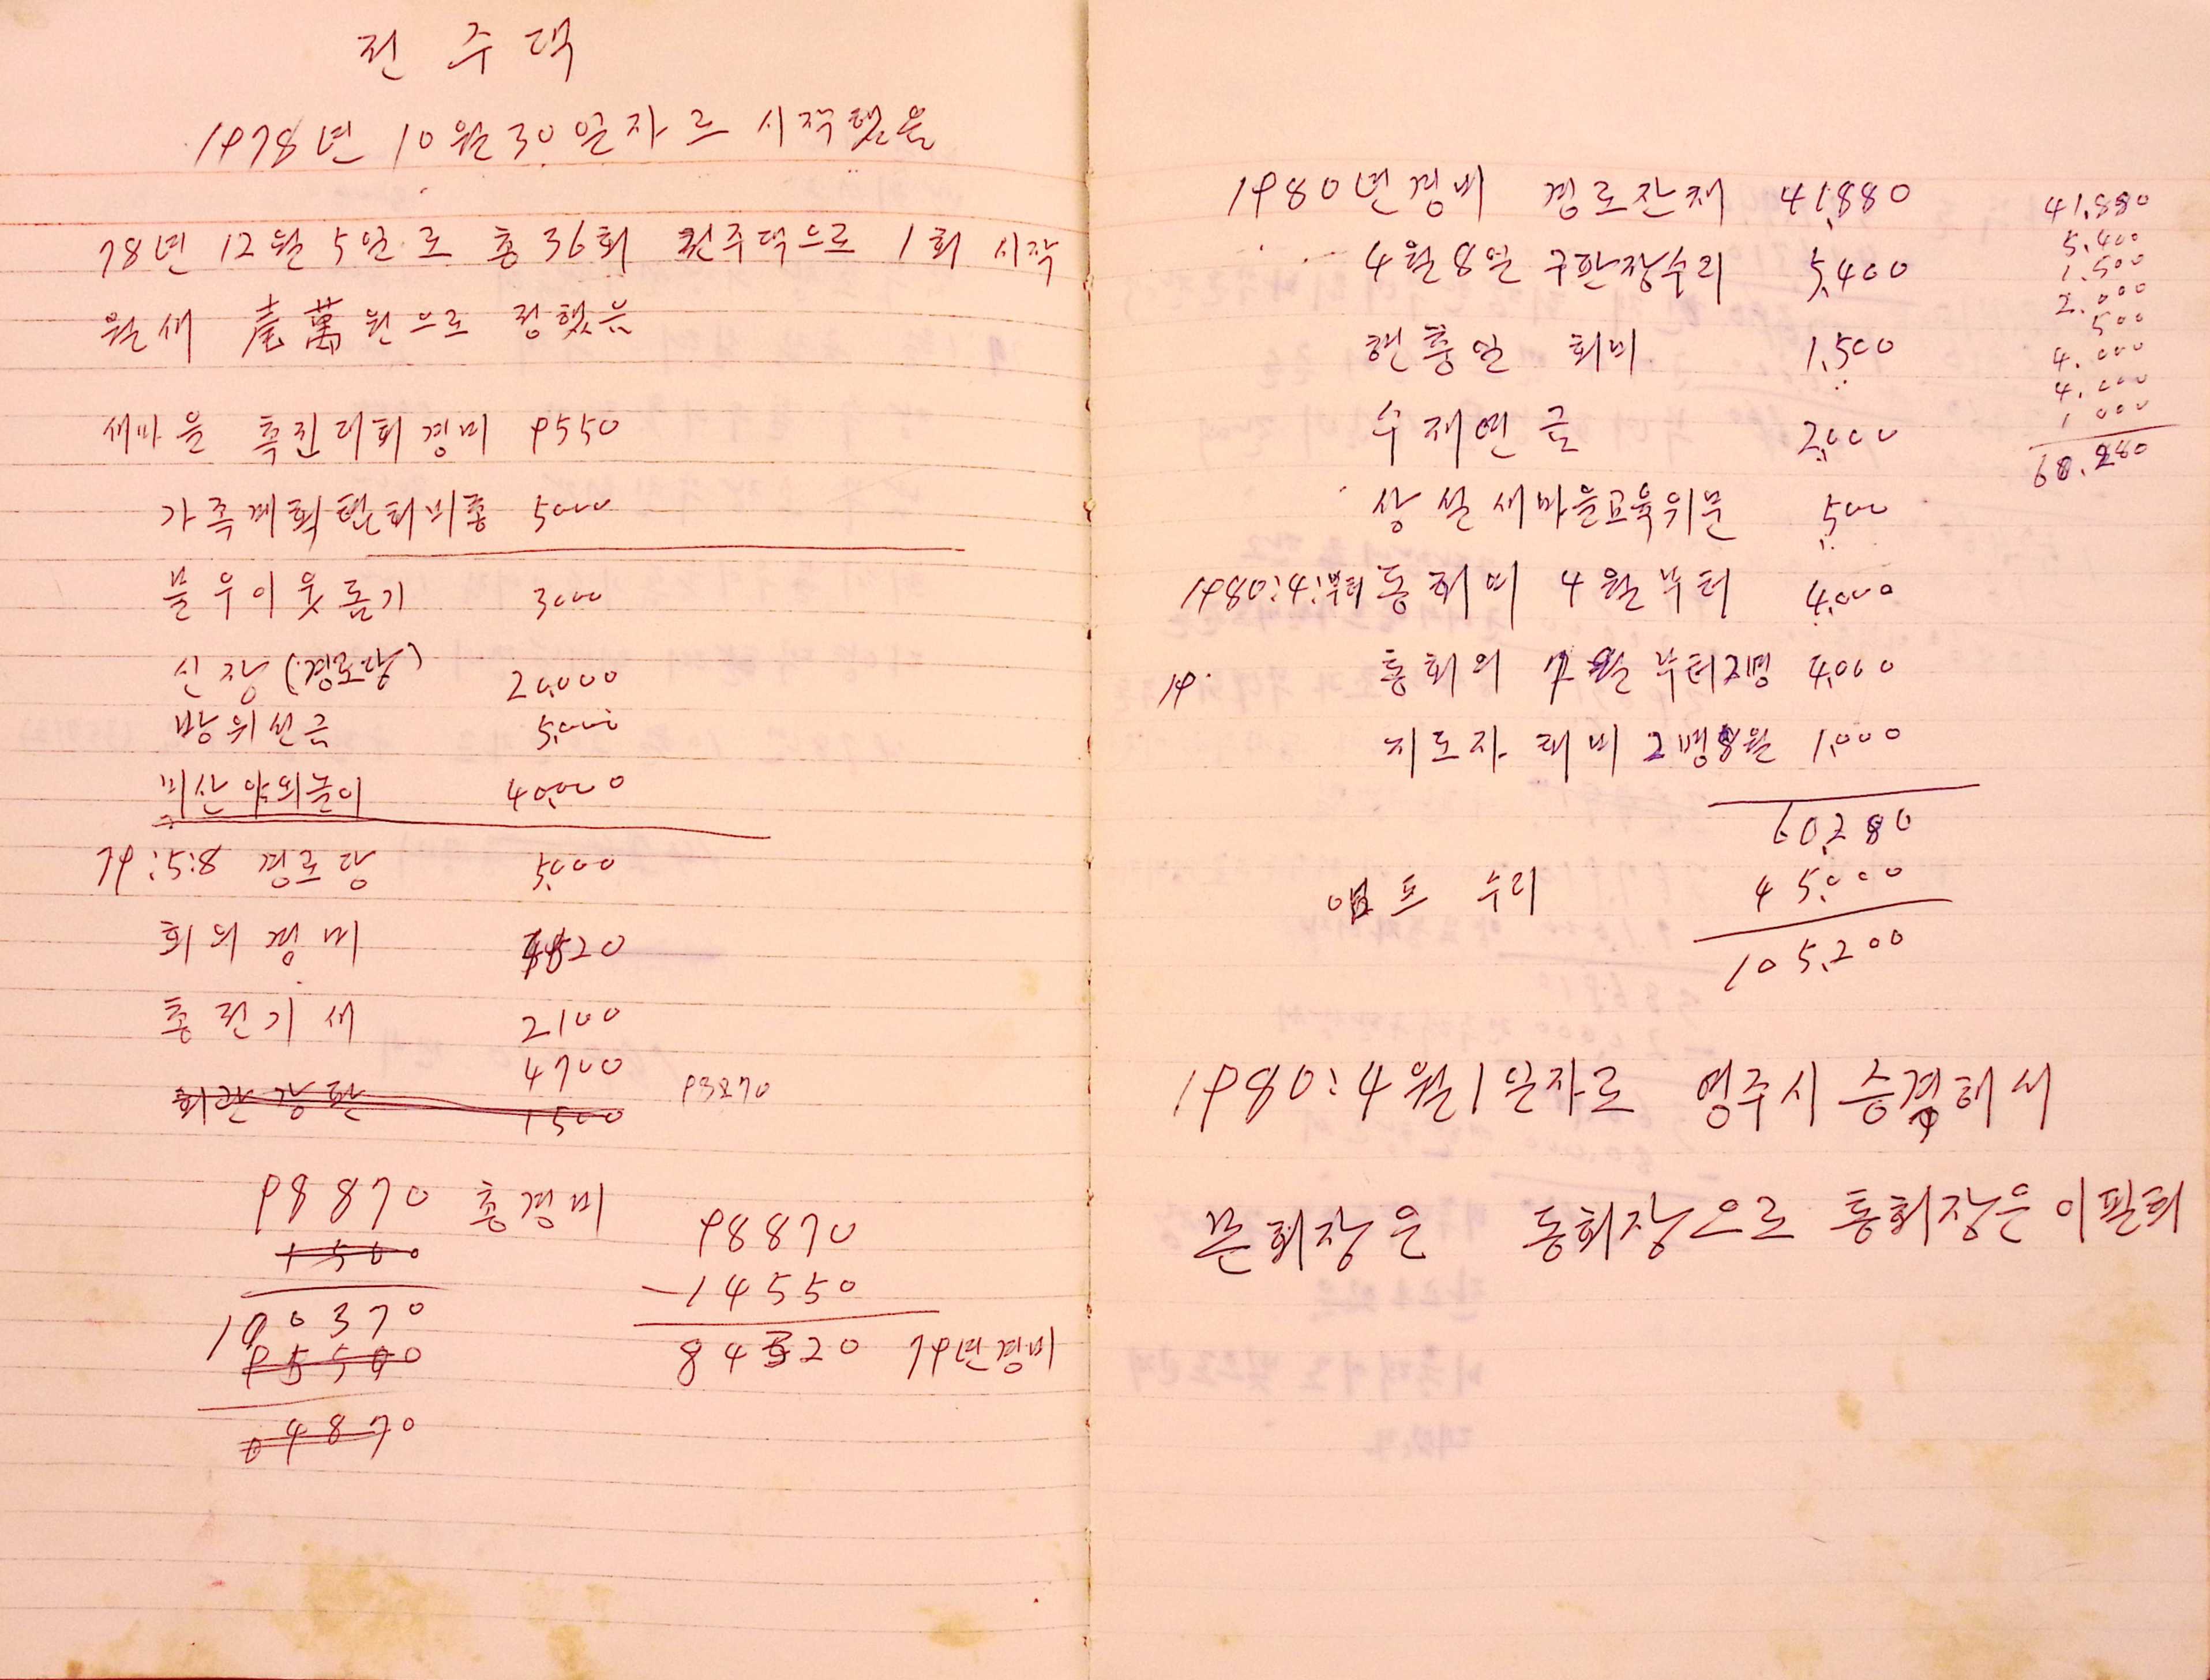 전 주 댁
1978년 10월 30일자르 시작했음
78년 12월 5일로 총 36회 전주댁으로 1회 시작
월새 壱萬원으로 정했음
새마을 촉진대회경비 9550
가족계획 5000
불우이웃돕기 3000
신장 (경로당) 20,000
방위선금 5,000
야외놀이 40,000
79:5:8 경로당 5,000
회의경비 20
총전기새 2100
4700
회관장판 1500
93870
98870 총경비
1500
100370
95500
04870
98870
-14550
84320 79년경비
1980년경비 경로잔채 41,880
4월8일 구판장수리 5,400
현충일 회비 1,500
수재연금 2,000
상설새마을교육위문 500
1980:4:부터 동회비 4월부터 4,000
19. 통회의 7월부터2명 4,000
지도자 회비 2명8월 1,000
60,280
앰프 수리 45,000
105,200
41,880
5,400
1,500
2,000
500
4,000
4,000
1000
60,280
1980:4월1일자로 영주시 승격해서
본회장은 동회장으로 통회장은 이필희